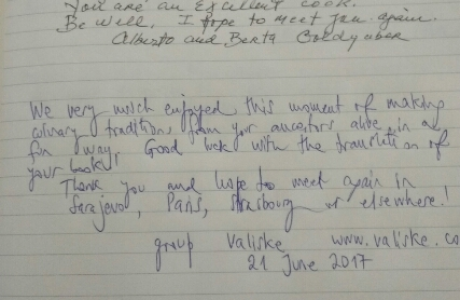 You are an Excellent cook.
Be well. I hope to meet you again.
Alberto and Berta
We very much enjoyed this moment of making
culinary traditions from your ancestors alive in a
fun way. Good luck with the translation of
your book,
Thank you and hope to meet again in
Sarajevo, Paris, Strasbourg or elsewhere!
group Valiske www.valiske.co
21 June 2017